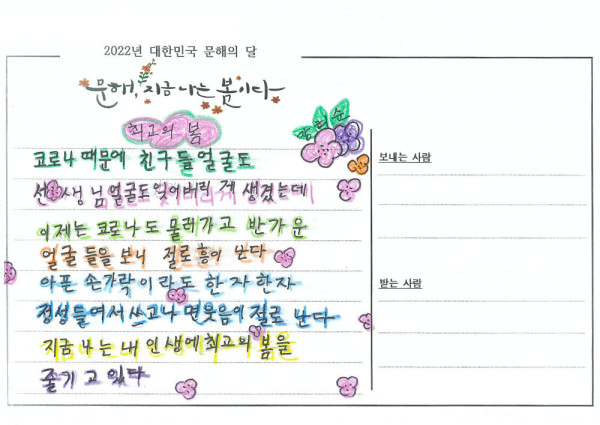 2022년 대한민국 문해의 달
문해, 지금 나는 봄이다
최고의 봄
코로나 때문에 친구들 얼굴도
선생님 얼굴도 잊어버린 게 생겼는데
이제는 코로나도 물러가고 반가운
얼굴들을 보니 절로 흥이 난다
아픈 손가락이라도 한자한자
정성들여서 쓰고나면 웃음이 절로 난다
지금 나는 내 인생에 최고의 봄을
즐기고 있다
보내는 사람
받는 사람